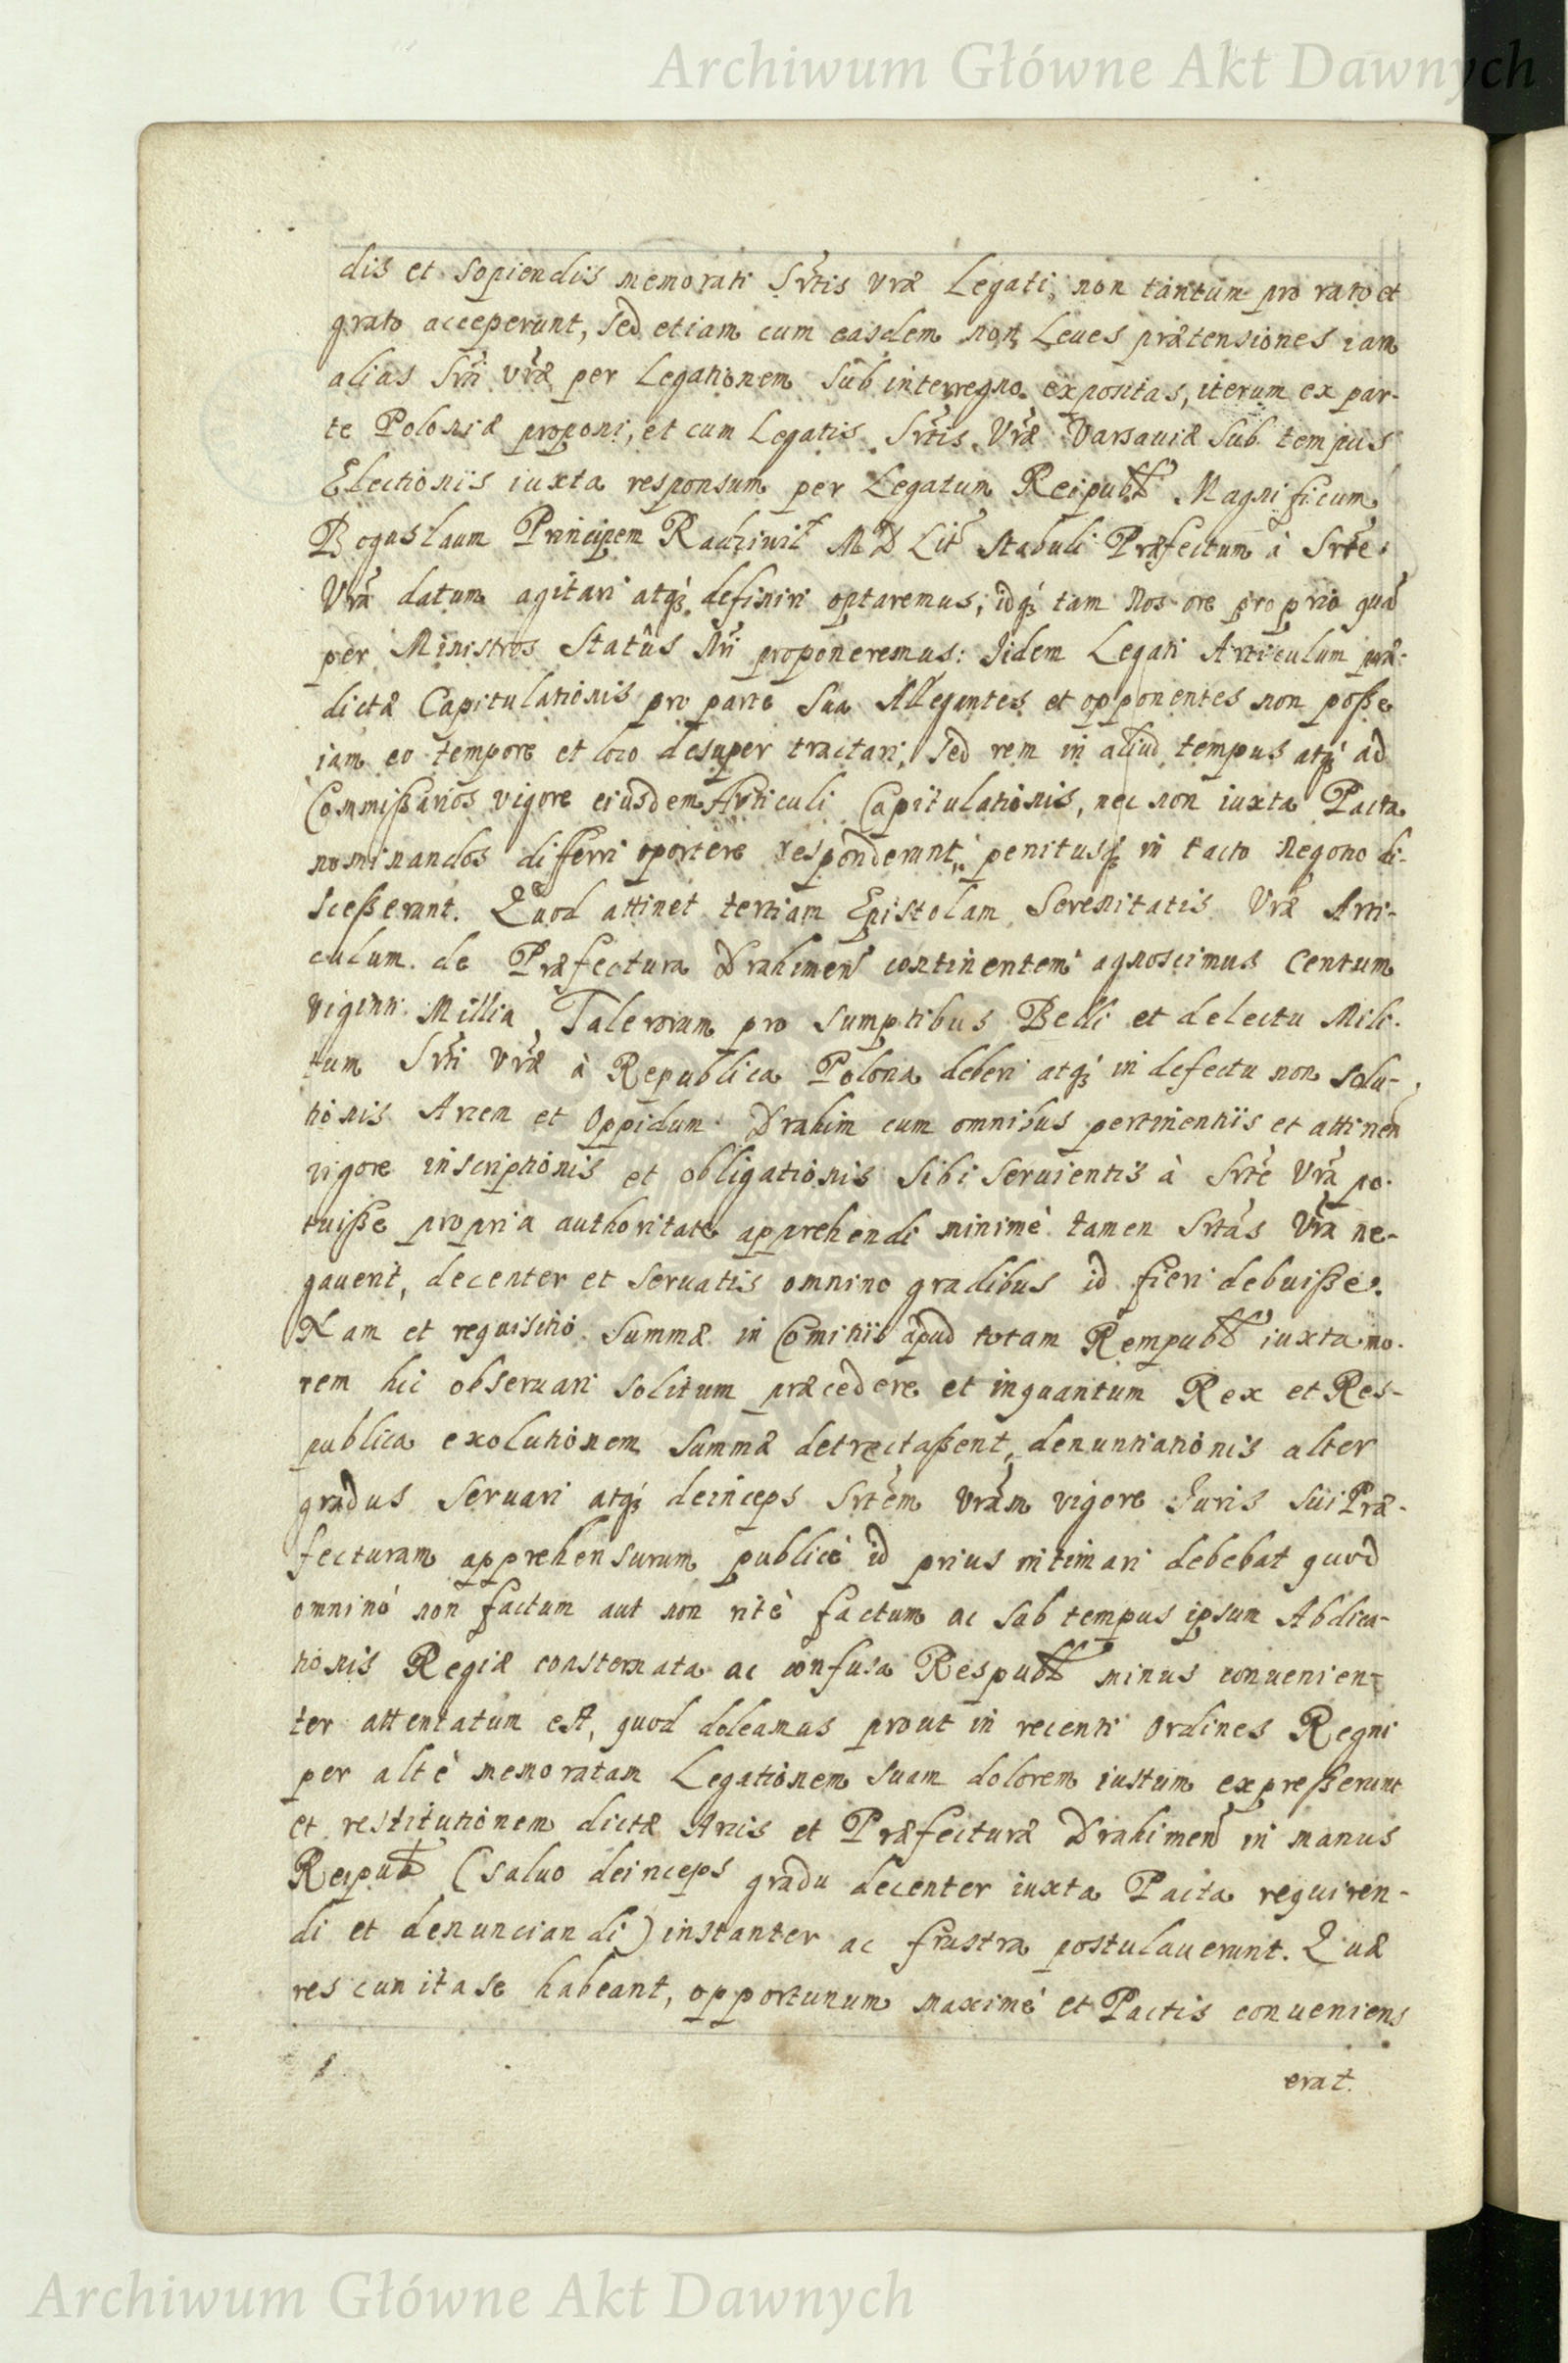 Archiwum Główne Akt Dawnych
dis et sopiendis memorati Srtis Vræ Legati, non tantum pro rato et
grato acceperunt, sed etiam cum easdem non Leues prætensiones iam
alias Srti Vræ per Legationem sub interregno expositas, iterum ex par-
te Poloniæ proponi, et cum Legatis Srtis Vræ Varsaviæ sub tempus
Electioniis iuxta responsum per Legatum Reipubl Magnificum
Boguslaum Principem Radziwil M D Lit Stabuli Præfectum à Srte
Vra datum agitari atq definiri optaremus, idq tam Nos ore proprio qua
per Ministros Statûs Nri proponeremus: Iidem Legati Articulum præ-
dictæ Capitulationis pro parte sua Allegantes et opponentes non posse
iam eo tempore et loco desuper tractari, sed rem in aliud tempus atq ad
Commissarios vigore eiusdem Articuli Capitulationis, nec non iuxta Pacta
nominandos differri oportere responderunt, penitusq in tacto negotio di-
scesserunt. Quod attinet tertiam Epistolam Serenitatis Vræ Arti-
culum de Præfectura Drahimen continentem agnoscimus Centum
viginti Millia Talerorum pro sumptibus Belli et delectu Mili-
tum Srti Vræ à Republica Polona deberi atq in defectu non solu-
tionis Arcem et Oppidum Drahim cum omnibus pertinentiis et attinen
vigore inscriptionis et obligationis sibi seruientis à Srte Vra po-
tuisse propria authoritate apprehendi minimè tamen Srtas Vra ne-
gauerit, decenter et seruatis omnino gradibus id fieri debuisse.
Nam et requisitio summæ in Comitiis apud totam Rempubl iuxta mo-
rem hic obseruari solitum præcedere et inquantum Rex et Res-
publica exolutionem summæ detrectassent, denuntiationis alter
gradus seruari atq deinceps Srtem Vram vigore Iuris sui Præ-
fecturam apprehensuram publicè id prius intimari debebat quod
omninò non factum aut non ritè factum ac sub tempus ipsum Abdica-
tionis Regiæ consternata ac confusa Respubl minus conuenien-
ter attentatum est, quod doleamus prout in recenti Ordines Regni
per altè memoratam Legationem suam dolorem iustum expresserunt
et restitutionem dictæ Arcis et Præfecturæ Drahimen in manus
Reipub (saluo deinceps gradu decenter iuxta Pacta requiren-
di et denunciandi) instanter ac frustra postulauerunt. Quæ
res cum ita se habeant, opportunum maximè et Pactis conueniens
erat.
Archiwum Główne Akt Dawnych